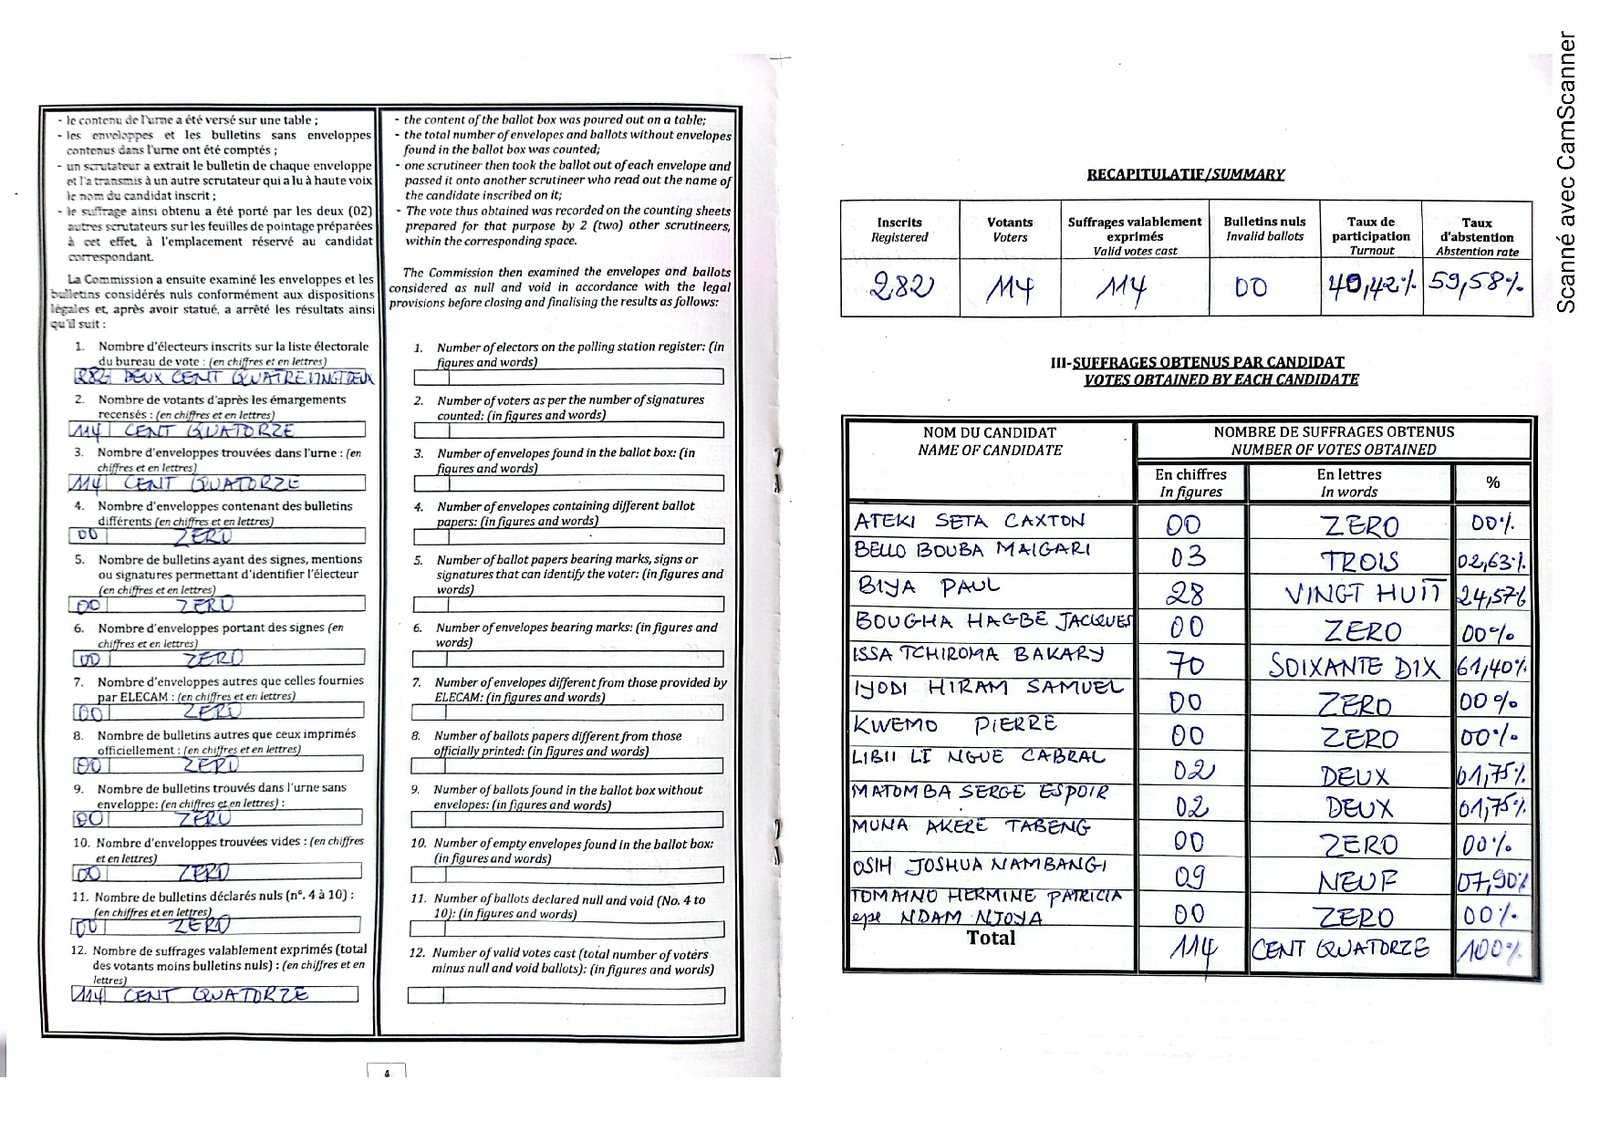 - le contenu de l'urne a été versé sur une table ;
- les enveloppes et les bulletins sans enveloppes
contenus dans l'urne ont été comptés ;
- un scrutateur a extrait le bulletin de chaque enveloppe
et l'a transmis à un autre scrutateur qui a lu à haute voix
le nom du candidat inscrit ;
- le suffrage ainsi obtenu a été porté par les deux (02)
autres scrutateurs sur les feuilles de pointage préparées
à cet effet, à l'emplacement réservé au candidat
correspondant.
La Commission a ensuite examiné les enveloppes et les
bulletins considérés nuls conformément aux dispositions
légales et, après avoir statué, a arrêté les résultats ainsi
qu'il suit :
1. Nombre d'électeurs inscrits sur la liste électorale
du bureau de vote : (en chiffres et en lettres)
282 DEUX CENT QUATREVINGTDEUX
2. Nombre de votants d'après les émargements
recensés : (en chiffres et en lettres)
114 CENT QUATORZE
3. Nombre d'enveloppes trouvées dans l'urne : (en
chiffres et en lettres)
114 CENT QUATORZE
4. Nombre d'enveloppes contenant des bulletins
différents (en chiffres et en lettres)
00 ZERO
5. Nombre de bulletins ayant des signes, mentions
ou signatures permettant d'identifier l'électeur
(en chiffres et en lettres)
00 ZERO
6. Nombre d'enveloppes portant des signes (en
chiffres et en lettres)
00 ZERO
7. Nombre d'enveloppes autres que celles fournies
par ELECAM : (en chiffres et en lettres)
00 ZERO
8. Nombre de bulletins autres que ceux imprimés
officiellement : (en chiffres et en lettres)
00 ZERO
9. Nombre de bulletins trouvés dans l'urne sans
enveloppe: (en chiffres et en lettres) :
00 ZERO
10. Nombre d'enveloppes trouvées vides : (en chiffres
et en lettres)
00 ZERO
11. Nombre de bulletins déclarés nuls (n°. 4 à 10) :
(en chiffres et en lettres)
00 ZERO
12. Nombre de suffrages valablement exprimés (total
des votants moins bulletins nuls) : (en chiffres et en
lettres)
114 CENT QUATORZE
- the content of the ballot box was poured out on a table;
- the total number of envelopes and ballots without envelopes
found in the ballot box was counted;
- one scrutineer then took the ballot out of each envelope and
passed it onto another scrutineer who read out the name of
the candidate inscribed on it;
- The vote thus obtained was recorded on the counting sheets
prepared for that purpose by 2 (two) other scrutineers,
within the corresponding space.
The Commission then examined the envelopes and ballots
considered as null and void in accordance with the legal
provisions before closing and finalising the results as follows:
1. Number of electors on the polling station register: (in
figures and words)
2. Number of voters as per the number of signatures
counted: (in figures and words)
3. Number of envelopes found in the ballot box: (in
figures and words)
4. Number of envelopes containing different ballot
papers: (in figures and words)
5. Number of ballot papers bearing marks, signs or
signatures that can identify the voter: (in figures and
words)
6. Number of envelopes bearing marks: (in figures and
words)
7. Number of envelopes different from those provided by
ELECAM: (in figures and words)
8. Number of ballots papers different from those
officially printed: (in figures and words)
9. Number of ballots found in the ballot box without
envelopes: (in figures and words)
10. Number of empty envelopes found in the ballot box:
(in figures and words)
11. Number of ballots declared null and void (No. 4 to
10): (in figures and words)
12. Number of valid votes cast (total number of voters
minus null and void ballots): (in figures and words)
4
RECAPITULATIF/SUMMARY
Inscrits Votants Suffrages valablement Bulletins nuls Taux de Taux
Registered Voters exprimés Invalid ballots participation d'abstention
Valid votes cast Turnout Abstention rate
282 114 114 00 40,42% 59,58%
III-SUFFRAGES OBTENUS PAR CANDIDAT
VOTES OBTAINED BY EACH CANDIDATE
NOM DU CANDIDAT NOMBRE DE SUFFRAGES OBTENUS
NAME OF CANDIDATE NUMBER OF VOTES OBTAINED
En chiffres En lettres %
In figures In words
ATEKI SETA CAXTON 00 ZERO 00%
BELLO BOUBA MAIGARI 03 TROIS 02,63%
BIYA PAUL 28 VINGT HUIT 24,576
BOUGHA HAGBE JACQUES 00 ZERO 00%
ISSA TCHIROMA BAKARY 70 SOIXANTE DIX 61,40%
IYODI HIRAM SAMUEL 00 ZERO 00%
KWEMO PIERRE 00 ZERO 00%
LIBII LI NGUE CABRAL 02 DEUX 01,75%
MATOMBA SERGE ESPOIR 02 DEUX 01,75%
MUNA AKERE TABENG 00 ZERO 00%
OSIH JOSHUA NAMBANGI 09 NEUF 07,90%
TOMAINO HERMINE PATRICIA
epse NDAM NJOYA 00 ZERO 00%
Total 114 CENT QUATORZE 100%
Scanné avec CamScanner